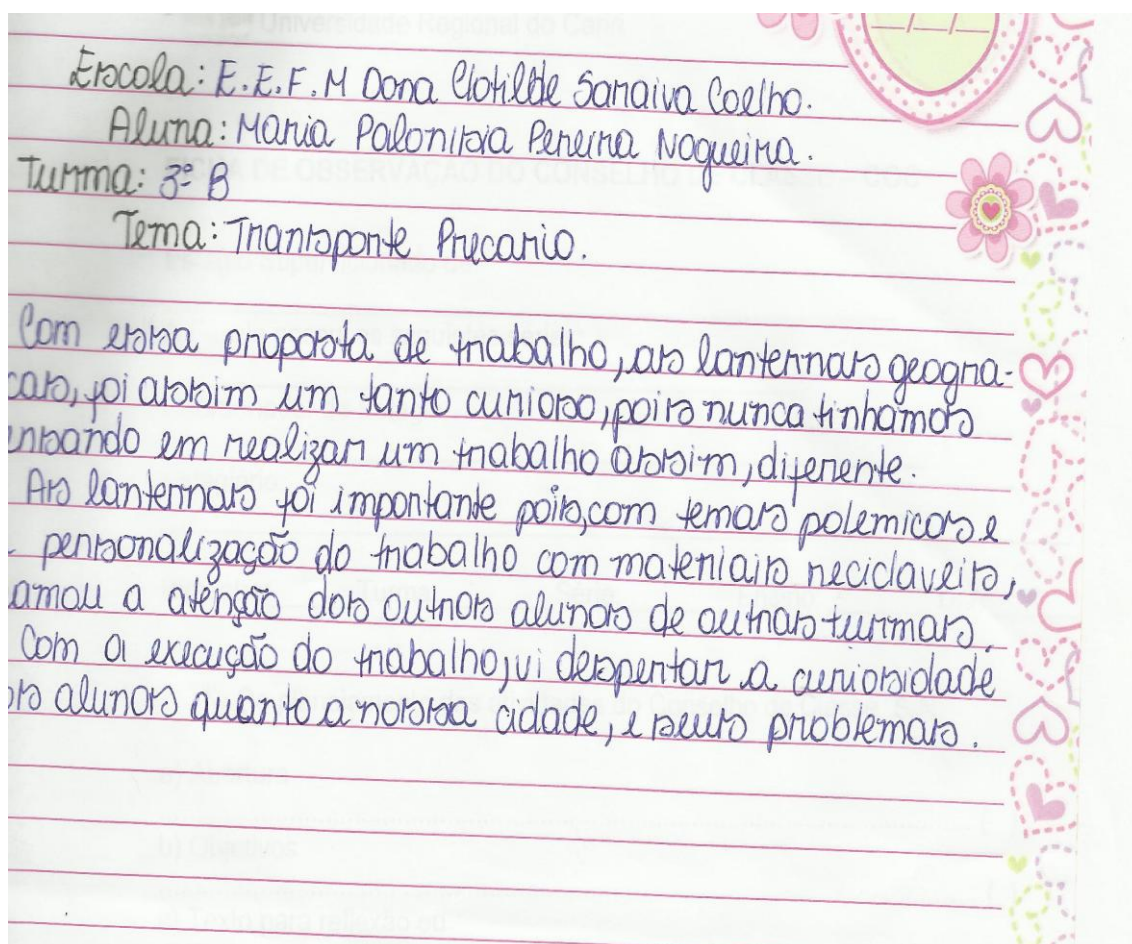 Universidade Regional do Cariri
Escola: E.E.F.M Dona Clotilde Saraiva Coelho.
Aluna: Maria Palonisia Pereira Nogueira.
Turma: 3º B
FICHA DE OBSERVAÇÃO DO CONSELHO DE CLASSE
Tema: Transporte Precario.
Com essa proposta de trabalho, as lanternas geogra-
cas, foi assim um tanto curioso, pois nunca tinhamos
ensando em realizar um trabalho assim, diferente.
As lanternas foi importante pois, com temas polemicos e
personalização do trabalho com materiais reciclaveis,
amou a atenção dos outros alunos de outras turmas.
Com a execução do trabalho, vi despertar a curiosidade
os alunos quanto a nossa cidade, e seus problemas.
b) Objetivos
Texto para reflexão ou